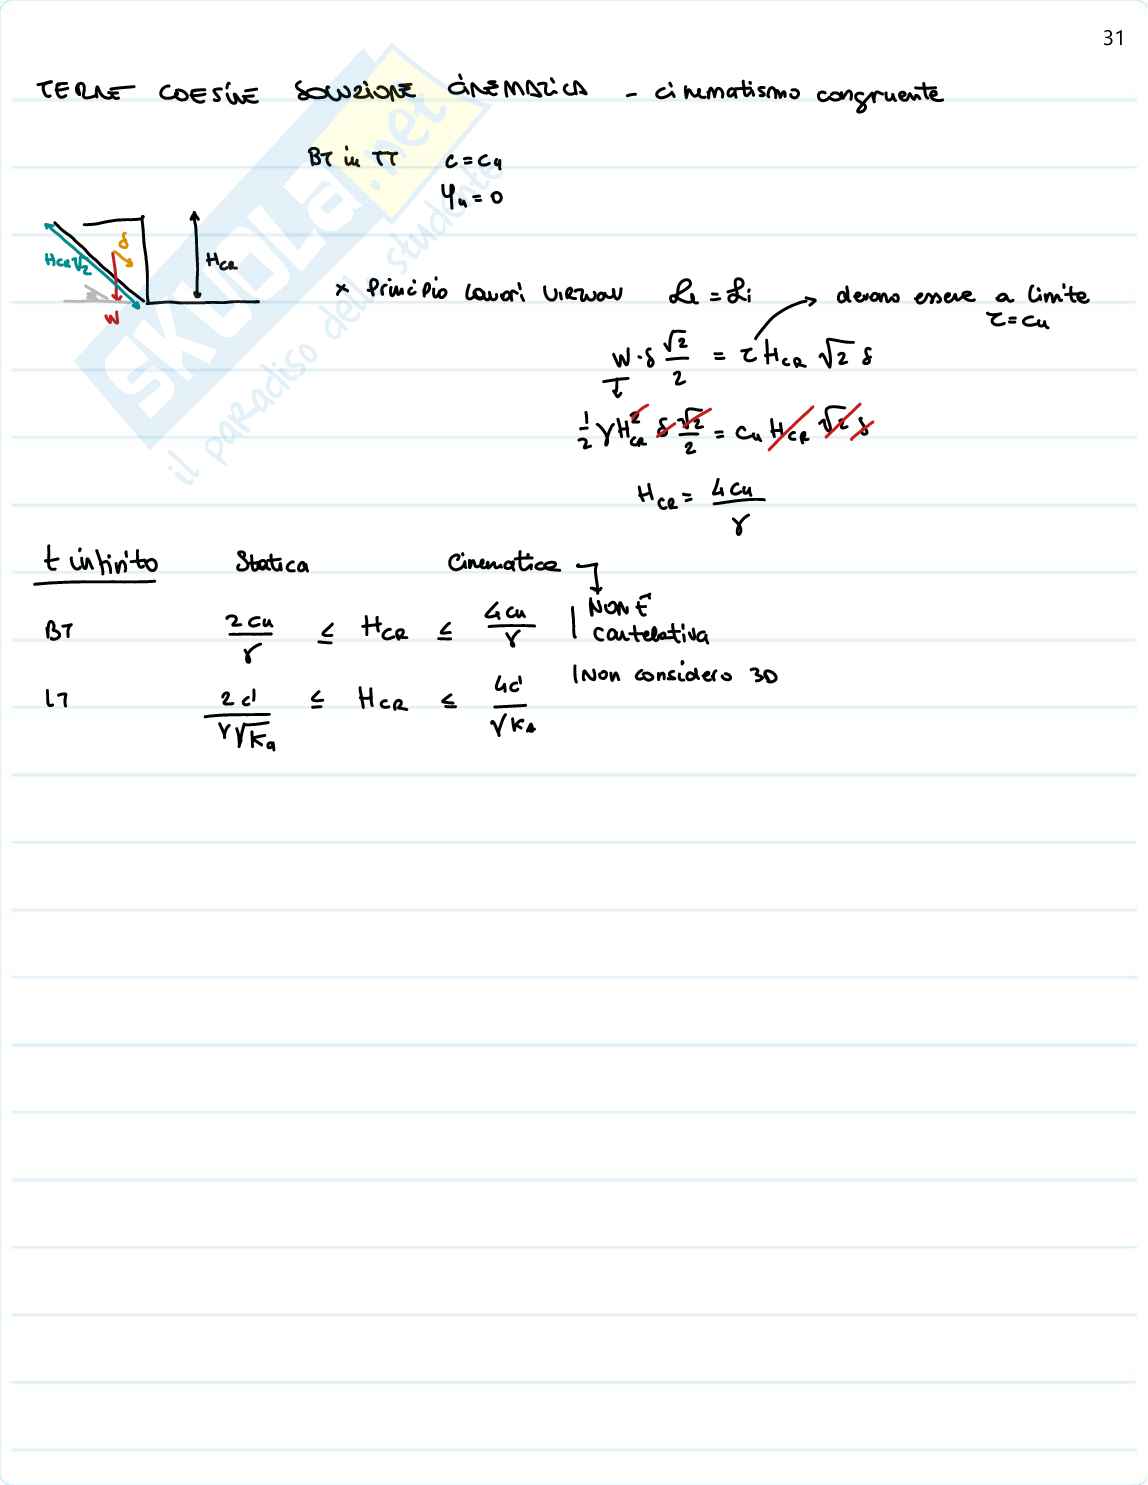 31
TERRE COESIVE SOLUZIONE CINEMATICA - cinematismo congruente
BT in TT c = cu
φu = 0
δ
Hcr√2
Hcr
W
* Principio Lavori VIRTUALI Le = Li → devono essere a limite
τ = cu
W · δ √2/2 = τ Hcr √2 δ
1/2 γ Hcr² δ √2/2 = cu Hcr √2 δ
Hcr = 4cu/γ
t infinito Statica Cinematica
NON È
BT 2cu/γ ≤ Hcr ≤ 4cu/γ cautelativa
Non considero 3D
LT 2c'/γ√Ka ≤ Hcr ≤ 4c'/√Ka
SKUOLA.net
il paradiso dello studente